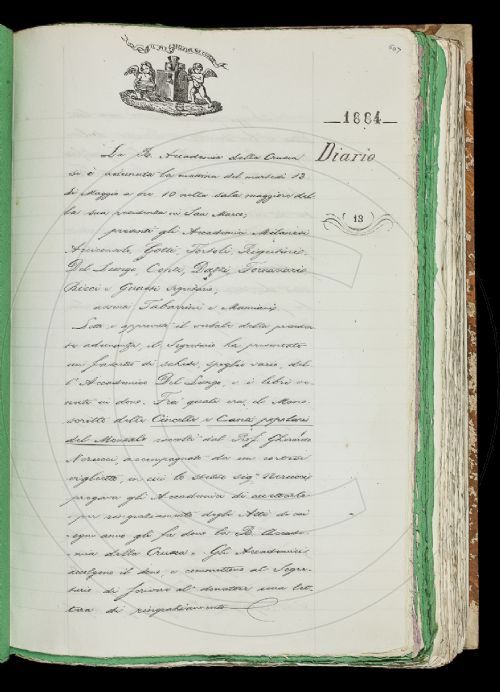 607
1884
Diario
13
La R. Accademia della Crusca
si è adunata la mattina del martedì 13
di Maggio a ore 10 nella sala maggiore del
la sua residenza in San Marco;
presenti gli Accademici Milanesi
Gotti, Tortoli, Rigutini,
Del Lungo, Conti, Dazzi, Tommasi
Ricci e Guasti Segretario;
assenti Tabarrini e Mamiani.
Letto e approvato il verbale della preceden
te adunanza, il Segretario ha presentato
un fascetto di schede, spoglio vario, del
l'Accademico Del Lungo, e i libri ve
nuti in dono. Tra' quali era il Mano
scritto delle Cincelle e Canti popolari
del Montale raccolti dal Prof. Gherardo
Nerucci, accompagnato da un cortese
viglietto, in cui lo stesso sig.r Nerucci
pregava gli Accademici di accettarlo
per ringraziamento degli Atti di cui
ogni anno gli fa dono la R. Accade-
mia della Crusca. Gli Accademici
accolgono il dono, e commettono al Segre-
tario di scrivere al donatore una let-
tera di ringraziamento.